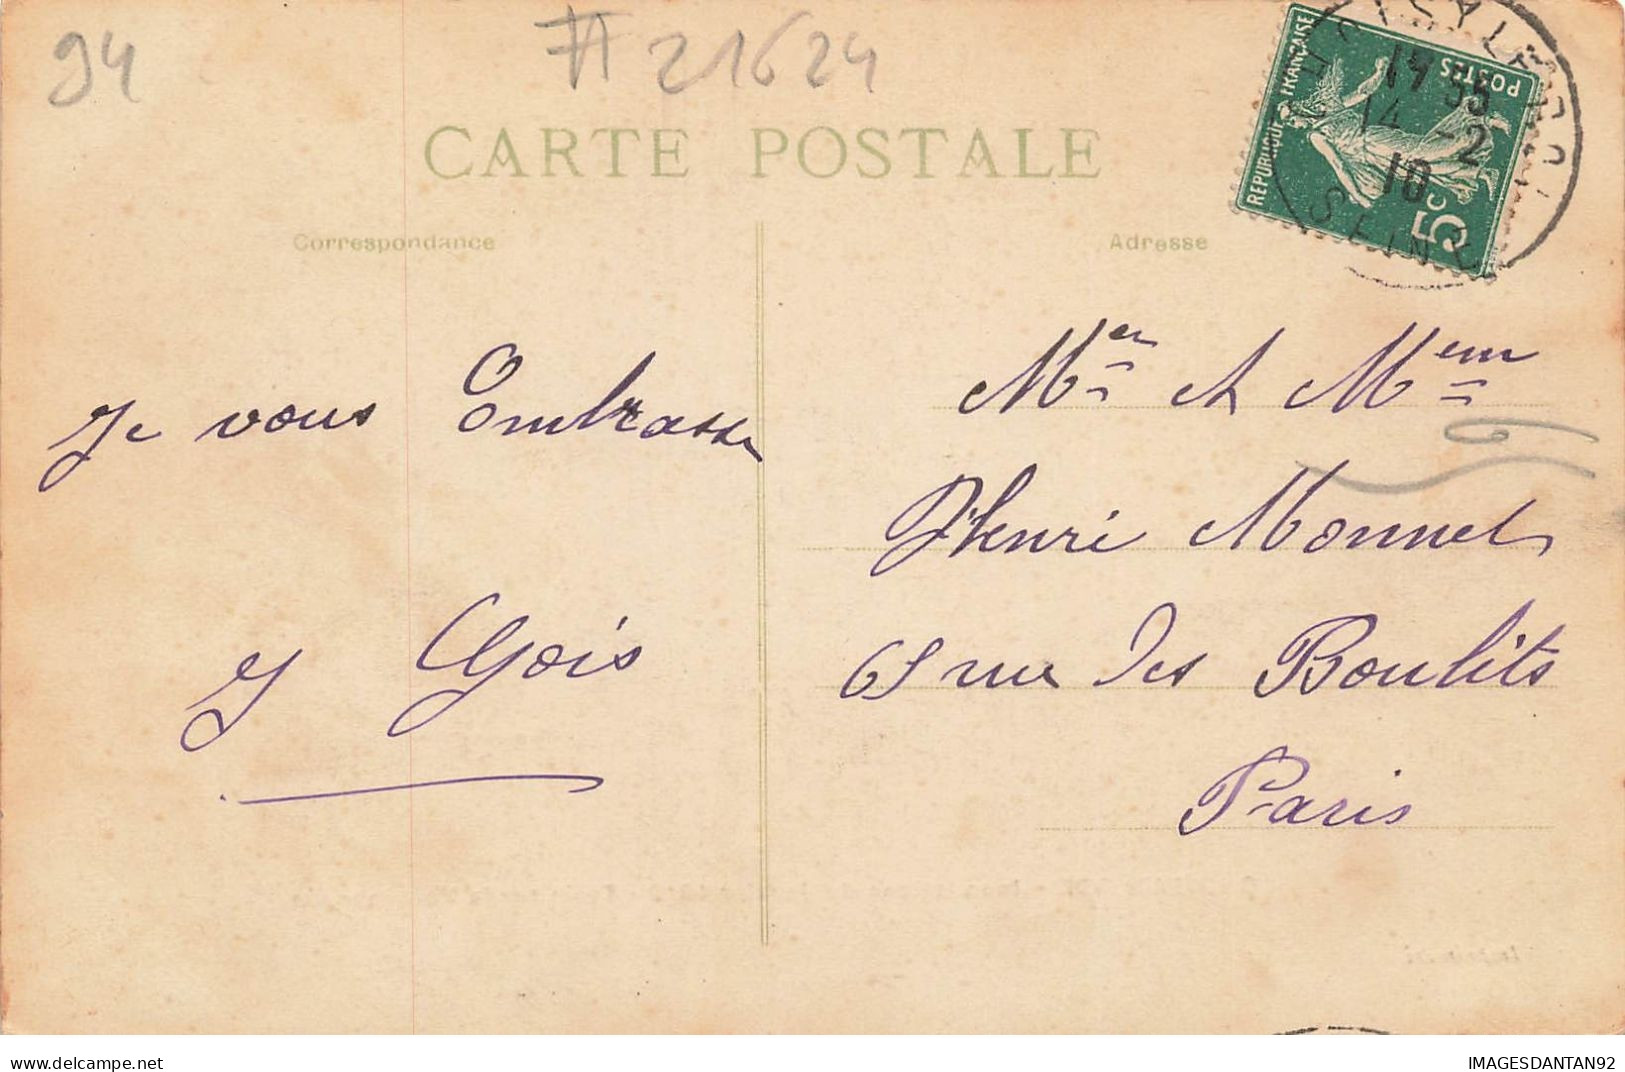 94
21624
CARTE POSTALE
RÉPUBLIQUE FRANÇAISE
POSTES
5c
14 -2
10
SEINE
Correspondance
Adresse
Je vous Embrasse
Y Gois
Mr et Mem
Henri Monnet
65 rue des Boulets
Paris
delcampe.net
IMAGESDANTAN92